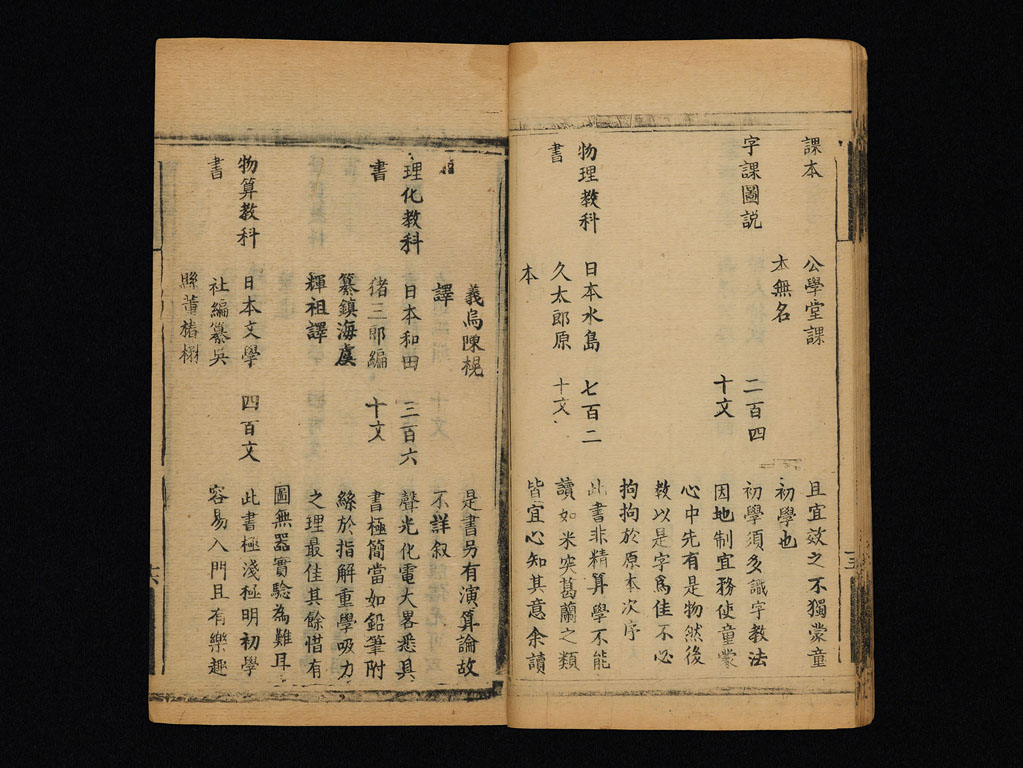 課本 公學堂課 且宜效之不獨蒙童
本無名 初學也
字課圖說 二百四 初學須多識字教法
十文 因地制宜務使童蒙
心中先有是物然後
教以是字為佳不必
拘拘於原本次序
物理教科 日本水島 七百二 此書非精算學不能
書 久太郎原 十文 讀如米突葛蘭之類
本 皆宜心知其意余讀
義烏陳榥 是書另有演算論故
譯 不詳叙
理化教科 日本和田 三百六 聲光化電大畧悉具
書 猪三郎編 十文 書極簡當如鉛筆附
纂鎮海虞 絲於指解重學吸力
輝祖譯 之理最佳其餘惜有
圖無器實驗為難耳
物算教科 日本文學 四百文 此書極淺極明初學
書 社編纂吳 容易入門且有樂趣
縣董瑞椿
六